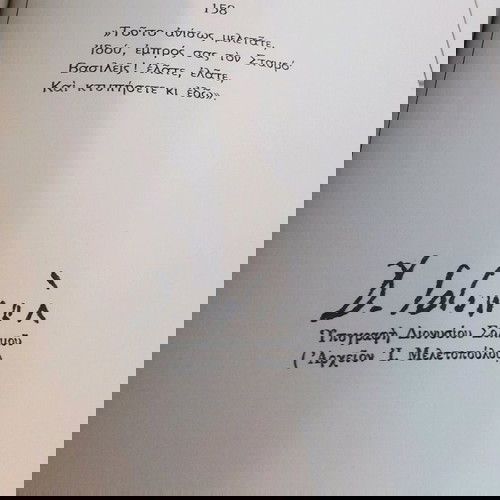 158
"Τοῦτο ἀνίσως μελετᾶτε,
Ἰδού, ἐμπρός σας τὸν Σταυρό
Βασιλεῖς! ἐλᾶτε, ἐλᾶτε,
Καὶ κτυπήσετε κι ἐδῶ».
Ὑπογραφὴ Διονυσίου Σολωμοῦ
(Ἀρχεῖον Ι. Μελετοπούλου)